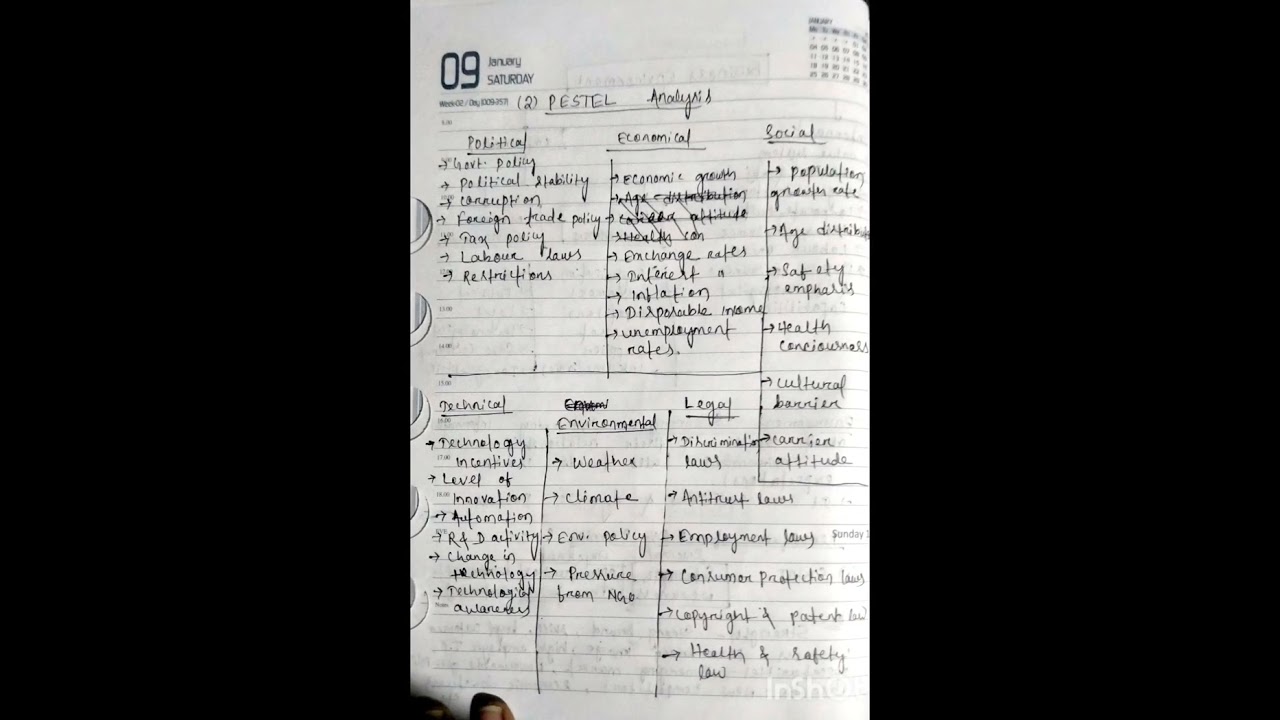 09 January
SATURDAY
Week-02 / Day (009-357)
JANUARY
(2) PESTEL Analysis
Political
→ Govt. policy
→ Political stability
→ Corruption
→ Foreign trade policy
→ Tax policy
→ Labour laws
→ Restrictions
Economical
→ Economic growth
→ Age distribution
→ attitude
→ Health con
→ Exchange rates
→ Interest "
→ Inflation
→ Disposable income
→ unemployment
rates.
Social
→ population
growth rate
→ Age distribut
→ Safety
emphasis
→ Health
conciousness
→ cultural
barrier
→ carrier
attitude
Technical
→ Technology
Incentives
→ Level of
Innovation
→ Automation
→ R & D activity
→ Change in
technology
→ Technological
awareness
Environmental
→ Weather
→ Climate
→ Env. policy
→ Pressure
from NGO
Legal
→ Discrimination
laws
→ Antitrust laws
→ Employment laws
→ Consumer protection laws
→ Copyright & patent law
→ Health & safety
law
Sunday
8.00
13.00
14.00
15.00
16.00
17.00
18.00
Notes
InSh